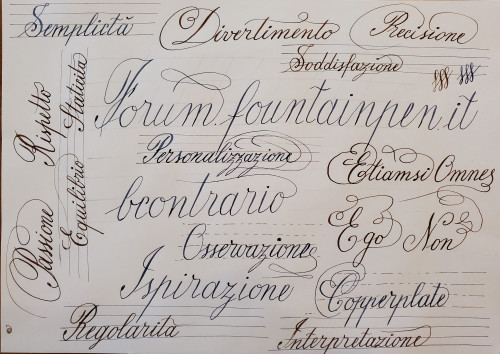 Semplicità
Divertimento
Precisione
Soddisfazione
Forum fountainpen.it
Rispetto
Staticità
Personalizzazione
Etiamsi Omnes
bcontrario
Ego Non
Passione
Equilibrio
Osservazione
Ispirazione
Copperplate
Regolarità
Interpretazione